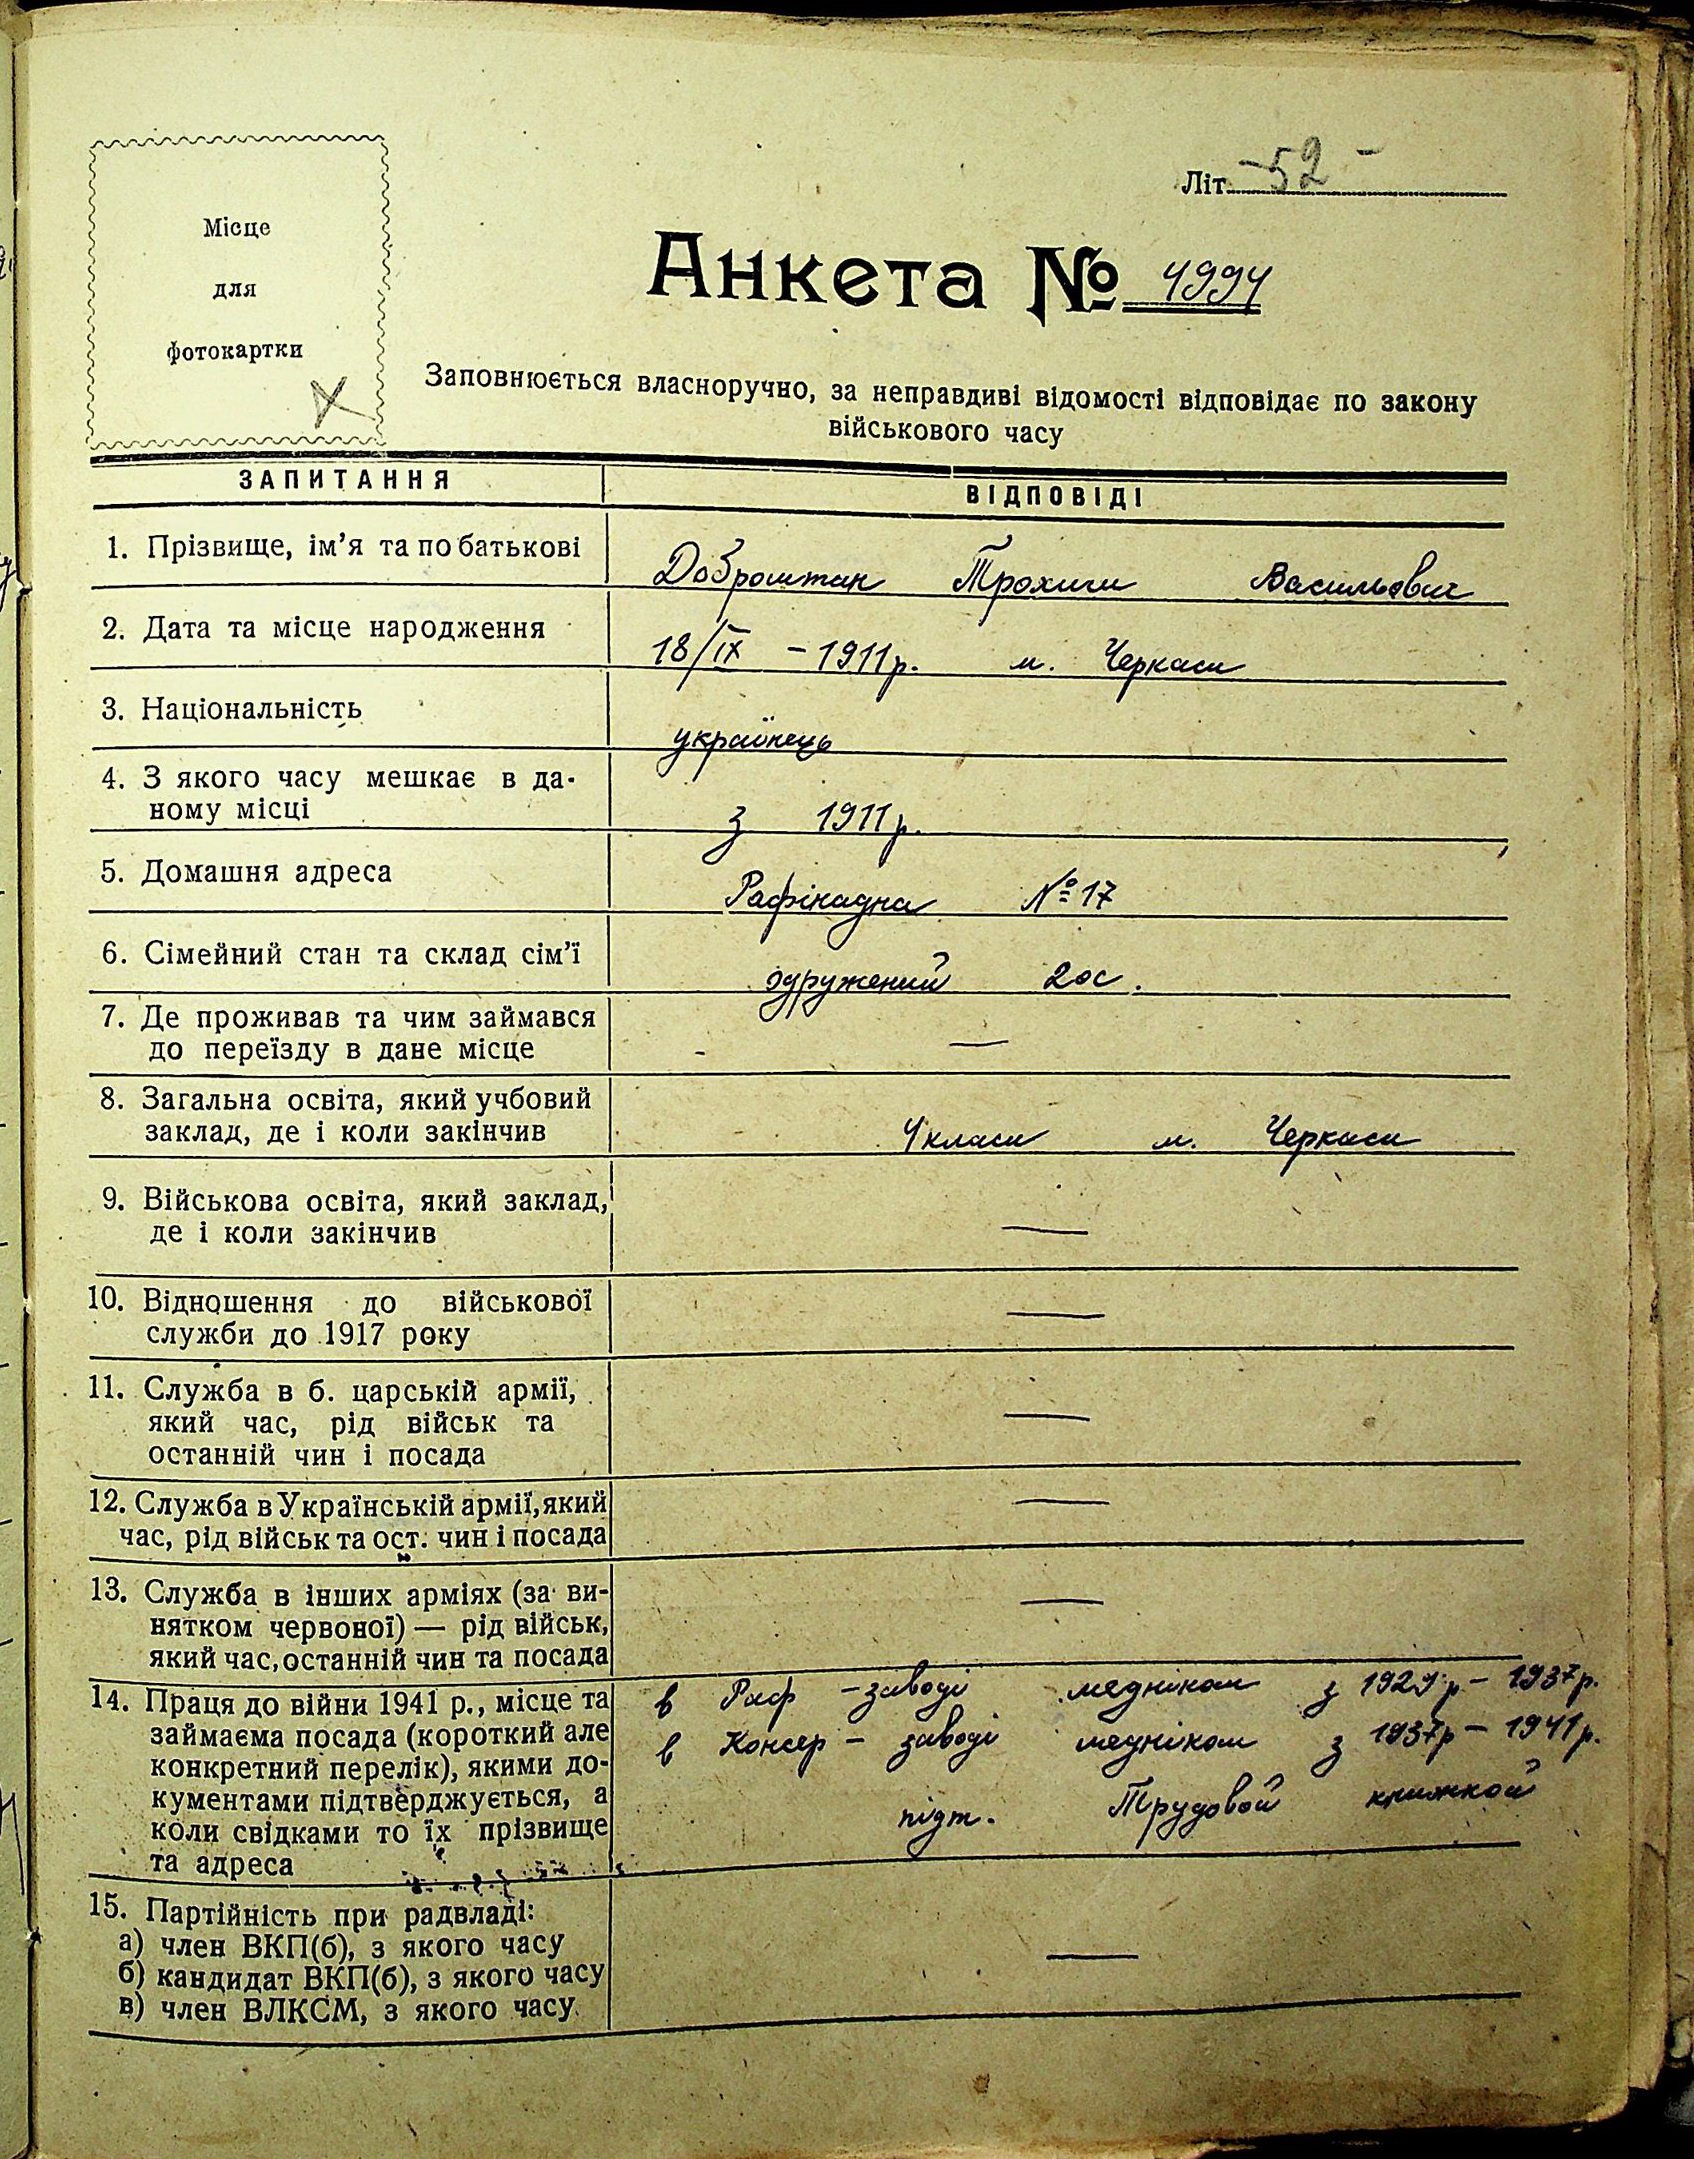 Місце
для
фотокартки
Літ. -52-
Анкета № 4994
Заповнюється власноручно, за неправдиві відомості відповідає по закону
військового часу
ЗАПИТАННЯ
ВІДПОВІДІ
1. Прізвище, ім'я та по батькові
Доброштан Трохим Васильович
2. Дата та місце народження
18/IX - 1911р. м. Черкаси
3. Національність
українець
4. З якого часу мешкає в да-
ному місці
з 1911р.
5. Домашня адреса
Рафінадна № 17
6. Сімейний стан та склад сім'ї
одружений 2 ос.
7. Де проживав та чим займався
до переїзду в дане місце
—
8. Загальна освіта, який учбовий
заклад, де і коли закінчив
4 класи м. Черкаси
9. Військова освіта, який заклад,
де і коли закінчив
—
10. Відношення до військової
служби до 1917 року
—
11. Служба в б. царській армії,
який час, рід військ та
останній чин і посада
—
12. Служба в Українській армії, який
час, рід військ та ост. чин і посада
—
13. Служба в інших арміях (за ви-
нятком червоної) — рід військ,
який час, останній чин та посада
—
14. Праця до війни 1941 р., місце та
займаєма посада (короткий але
конкретний перелік), якими до-
кументами підтверджується, а
коли свідками то їх прізвище
та адреса
в Раф - заводі медніком з 1929р - 1937р.
в Консер - заводі медніком з 1937р - 1941р.
підт. Трудовой книжкой
15. Партійність при радвладі:
а) член ВКП(б), з якого часу
б) кандидат ВКП(б), з якого часу
в) член ВЛКСМ, з якого часу
—